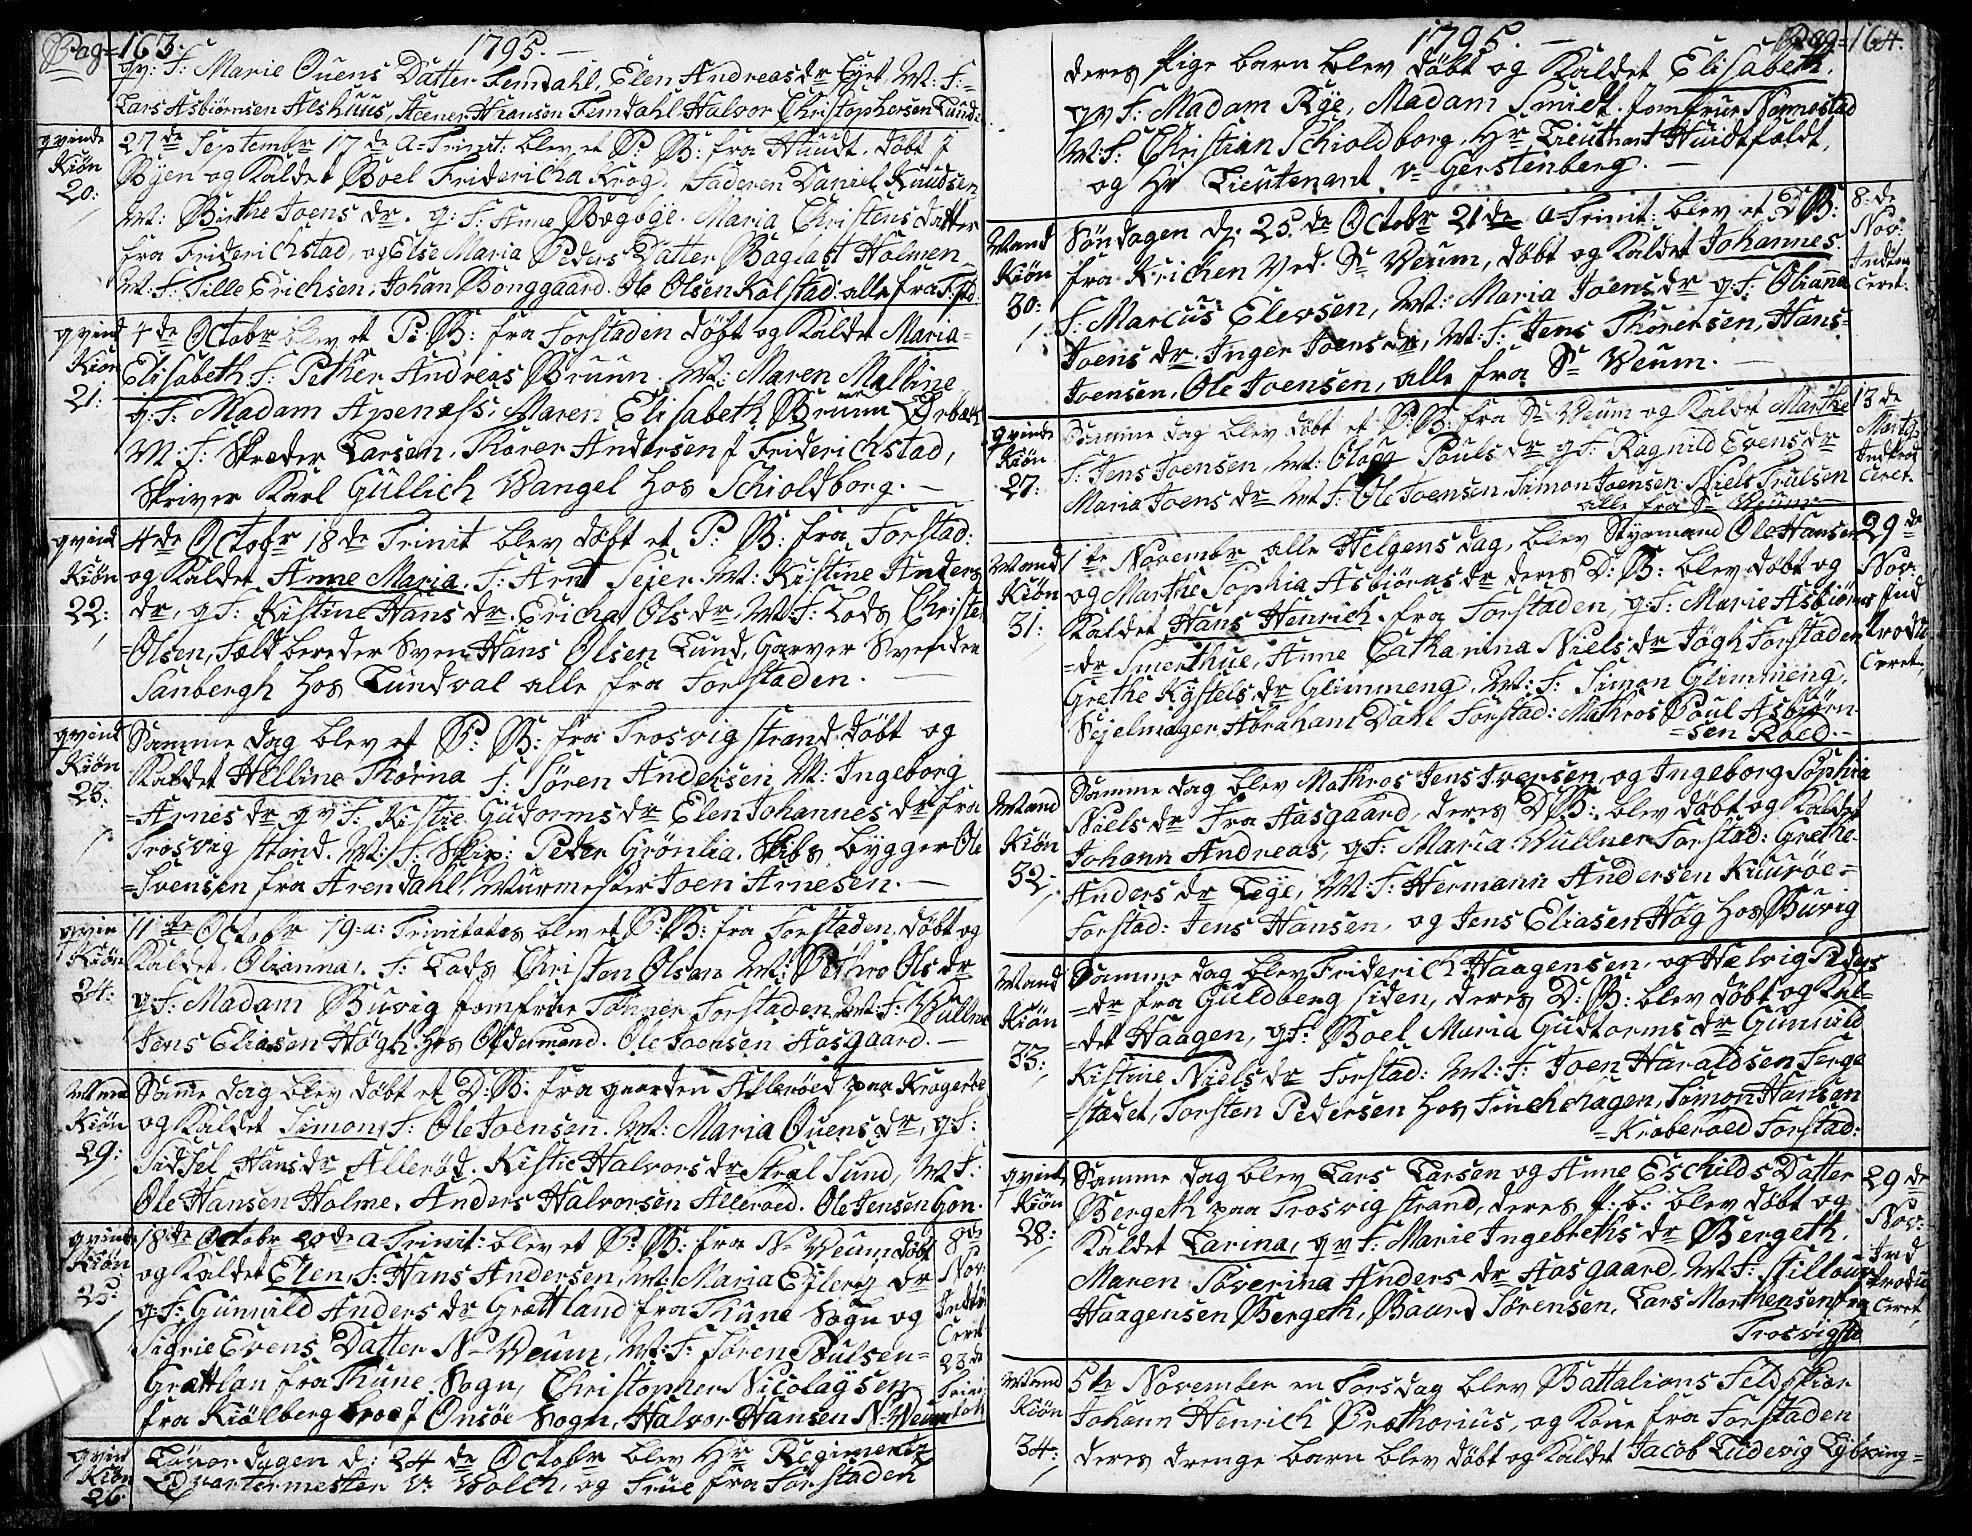 Pag=163. 1795.
qv: F: Marie Ouens Datter Femdahl, Elen Andreas dr Lyet, M: F:
Lars Asbiørnsen Alshuus, Hansen Femdahl Halvor Christophersen Lund
qvinde Kiøn 20:
27de Septembr 17de a=Trinit: blev et P: B: fra Huudt, døbt i
Byen og Kaldet Boel Fridericha Krog. Faderen Daniel Knudsen
M: Birthe Joens dr. q: F: Anne Bøgbye. Maria Christens datter
fra Friderichstad, og Else Maria Peders Datter Baglast Holmen
M: F: Tille Erichsen, Johan Bonggaard. Ole Olsen Kolstad alle fra F:stad
qvind Kiøn 21:
4de Octobr blev et P: B: fra Forstaden døbt og Kaldet Maria=
Elisabeth F: Pether Andreas Bruun. M: Maren Malline
q: F: Madam Apenæss, Maren Elisabeth Bruun
M: F: Skreder Larsen, Thorer Andersen f Friderichstad,
Skriver Karl Güllich Wangel hos Schioldborg. —
qvind Kiøn 22:
4de Octobr 18de Trinit blev døbt et P: B: fra Forstad:
og Kaldet Anne Maria. F: Arnt Seier M: Kistine Anders
dr, q F: Kistine Hans dr. Ericha Ols dr, M: F: Lods Christen
=Olsen, Feldbereder Sven Hans Olsen Lund, Garver Svenden
Sanbergh hos Lundval alle fra Forstaden. —
qvind Kiøn 23:
Samme dag blev et P: B: fra Trosvig strand døbt og
Kaldet Helline Thorna F: Søren Andersen M: Ingeborg
=Arnes dr q v F: Kistie Gudorms dr Elen Johannes dr fra
Trosvig strand. M: F: Skip: Peder Grønlia. Skibs bygger Ole
=Svensen fra Arendahl. Muurmester Joen Arnesen. —
qvin Kiøn 24:
11te Octobr 19=a: Trinitates blev et P: B: fra Forstaden. døbt og
Kaldet Olianna. F: Lods Christen Olsen M: Ols dr
q F: Madam Buvig Jomfrue Forstaden M: F: Wullner
Jens Eliasen Høgh. hos Oldermand. Ole Joensen Aasgaard. —
Mand Kiøn 29:
Same dag blev døbt et D: B: fra gaarden Allerøed paa Kragerøe
og Kaldet Simon F: Ole Joensen. M: Maria Ouens dr, q: F:
Sidsel Hans dr Allerød. Kistie Halvors dr Stral Sund, M F:
Ole Hansen Holme. Anders Halvorsen Allerøed. Ole Jensen Gon.
qvinde Kiøn 25:
18de Octobr 20de a Trinit: blev et P: B: fra N= Weum døbt
og Kaldet Elen F: Hans Andersen, M: Maria dr
q F: Gunnild Anders dr Grættland fra Thune Sogn og
Sigrie Evens Datter N= Weum, M: F: Søren Poulsen=
Grættlan fra Thune Sogn, Christopher Nicolaysen
fra Kiølberg broe f Onsøe Sogn, Halvor Hansen N=Weum
8de Nov: Ceret 23de
qvin Kiøn 26.
Løverdagen d: 24de Octobr blev Hr Regiments
Qvartermester v. Wolck, og Frue fra Forstaden
1795. — Pag=164.
deres Pige barn blev døbt og Kaldet Elisabeth.
qv F: Madam Rye, Madam Smidt. Jomfrue Nymestad
M: F: Christian Schioldborg, Hr Lieuthant Huidtfeldt,
og Hr Lieutenant v= Gerstenberg. —
Mand Kiøn 30:
Søndagen d. 25de Octobr 21de a=Trinit: blev et D B:
fra Krichen Ved Sr Weum, døbt og Kaldet Johannes.
F: Marcus Elevsen, M: Maria Joens dr q: F: Olianna
Joens dr. Inger Joens dr, M: F: Jens Thorersen, Hans=
Joensen. Ole Joensen, alle fra Sr Weum. —
8: de Nov: Ceret:
qvinde Kiøn 27:
Samme dag blev døbt et P: B: fra Sr Weum og Kaldet Marthe
F: Jens Joensen, M: Olaug Pouls dr q F: Ragnild Evens dr
Maria Joens dr M F: Ole Joensen. Simon Joensen. Niels Trulsen
alle fra Sr Weum
13de Ceret.
Mand Kiøn 31:
1te Novembr alle Helgens dag, blev Styrmand Ole Hansen
og Marthe Sophia Asbiørns dr deres D: B: blev døbt og
Kaldet Hans Henrich. fra Forstaden, q: F: Marie Asbiørns
=dr Smerthue, Anne Catharina Niels dr Forstaden
Grethe Kystels dr Glimmeng, M: F: Simon Glimmeng,
Sejelmager Abraham Dahl Forstad: Mathros Poul Asbiørn
=sen Roed. —
29de Nov: Ind trodu Ceret,
Mand Kiøn 32:
Samme dag blev Mathros Jens Iversen, og Ingeborg Sophia
Niels dr Fra Aasgaard, deres D: B: blev døbt og Kaldet
Johann Andreas, q F: Maria Wullner Forstad: Grethe
Anders dr Lye, M: F: Hermann Andersen Kuurøe=
Forstad: Jens Hansen, og Jens Eliasen Høg hos Buvig
Mand Kiøn 33:
Samme dag blev Friderich Haagensen, og Helvig Peders
=dr fra Guldberg siden, deres D: B: blev døbt og Kal=
=det Haagen, q F: Boel Maria Gudtorms dr Gunnild
Kistine Niels dr Forstad: M: F: Joen Haraldsen Ferge
=stadet, Torsten Pedersen hos Finchehagen, Simon Hansen
=Kraberøed Forstad:
qvind Kiøn 28:
Samme dag blev Lars Larsen og Anne Eschilds Datter
Bergeth paa Trosvig strand, deres P: b: blev døbt og
Kaldet Larina, q v F: Marie Ingebreths dr Bergeth.
Maren Severina Anders dr Aasgaard. M: F:
Haagensen Bergeth, Baard Sørensen, Lars Morthensen fra
Trosvigst
29de Nov: Ind trodu Ceret,
Mand Kiøn 34:
5te November en Torsdag blev Battalions Feldskier
Johann Henrich Prethorius, og Kone fra Forstaden
deres drenge barn blev døbt og Kaldet Jacob Ludevig